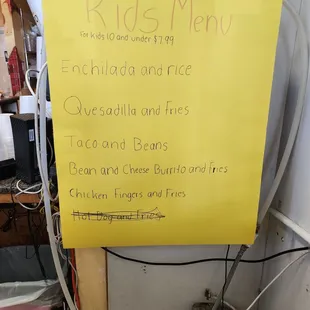 Kids Menu
for kids 10 and under $7.99
Enchilada and rice
Quesadilla and fries
Taco and Beans
Bean and Cheese Burrito and fries
Chicken Fingers and Fries
Hot Dog and Fries